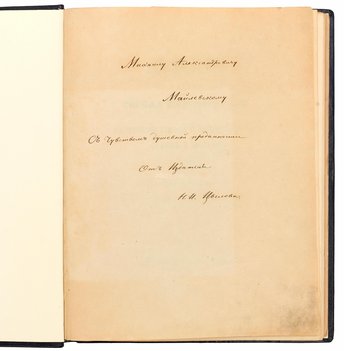 Михаилу Александровичу
Майлевскому
Съ чувствомъ душевной преданности
Отъ Издателя
Н. И.